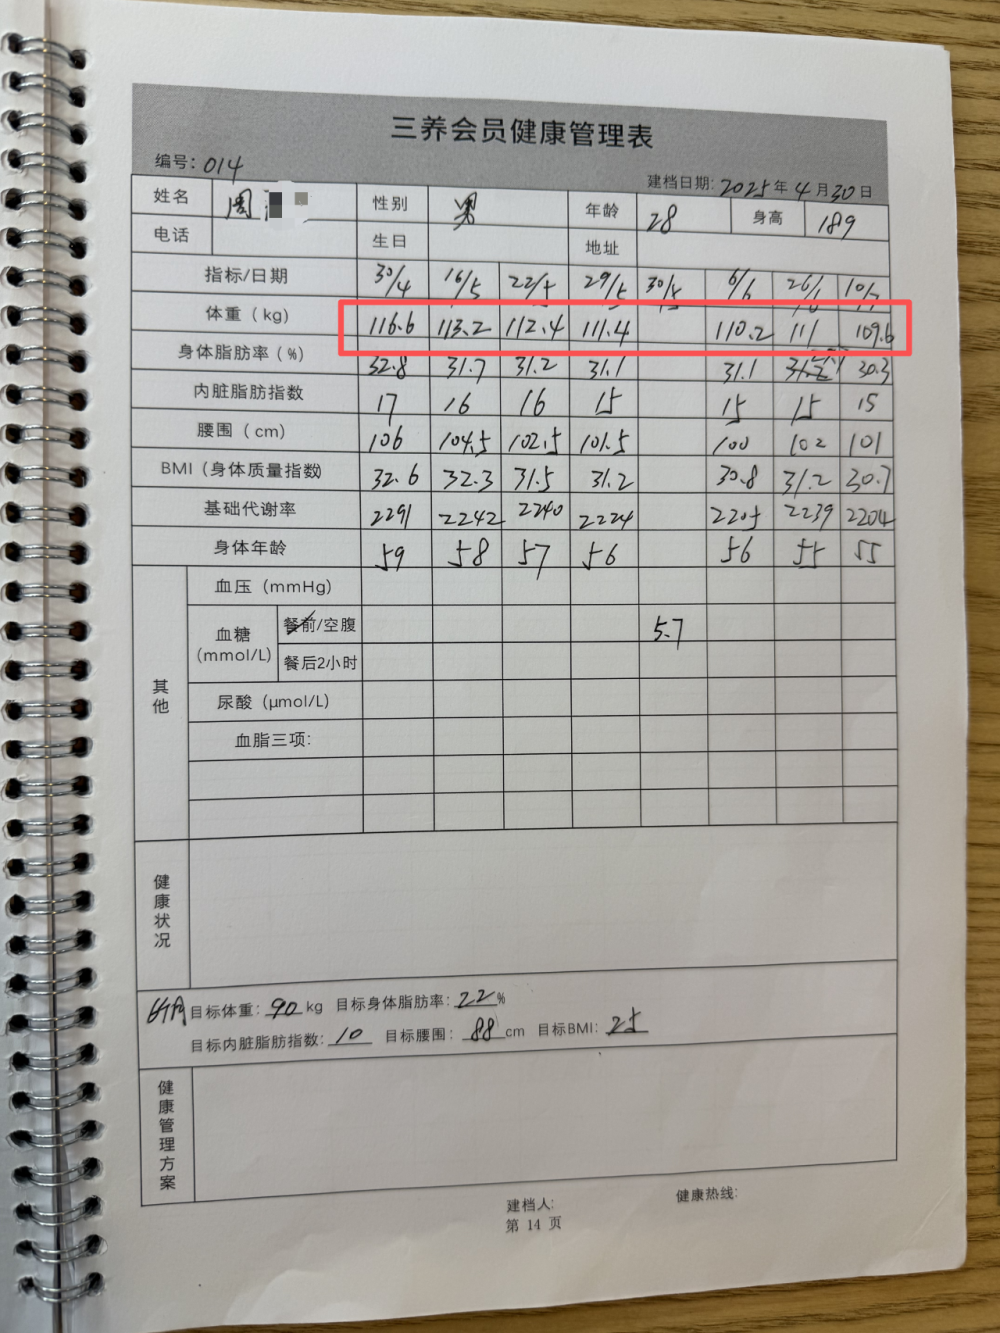 三养会员健康管理表
编号: 014
建档日期: 2025年4月30日
姓名 周 性别 男 年龄 28 身高 189
电话 生日 地址
指标/日期 30/4 16/5 22/5 29/5 30/5 6/6 26/6 10/7
体重（kg） 116.6 113.2 112.4 111.4 110.2 111 109.6
身体脂肪率（%） 32.8 31.7 31.2 31.1 31.1 30.3
内脏脂肪指数 17 16 16 15 15 15 15
腰围（cm） 106 104.5 102.5 101.5 100 102 101
BMI（身体质量指数 32.6 32.3 31.5 31.2 30.8 31.2 30.7
基础代谢率 2291 2242 2240 2224 2205 2239 2204
身体年龄 59 58 57 56 56 55 55
其他
血压（mmHg）
血糖(mmol/L)
餐前/空腹 5.7
餐后2小时
尿酸（μmol/L）
血脂三项:
健康状况
目标体重: 90 kg 目标身体脂肪率: 22 %
目标内脏脂肪指数: 10 目标腰围: 88 cm 目标BMI: 25
健康管理方案
建档人: 健康热线:
第 14 页